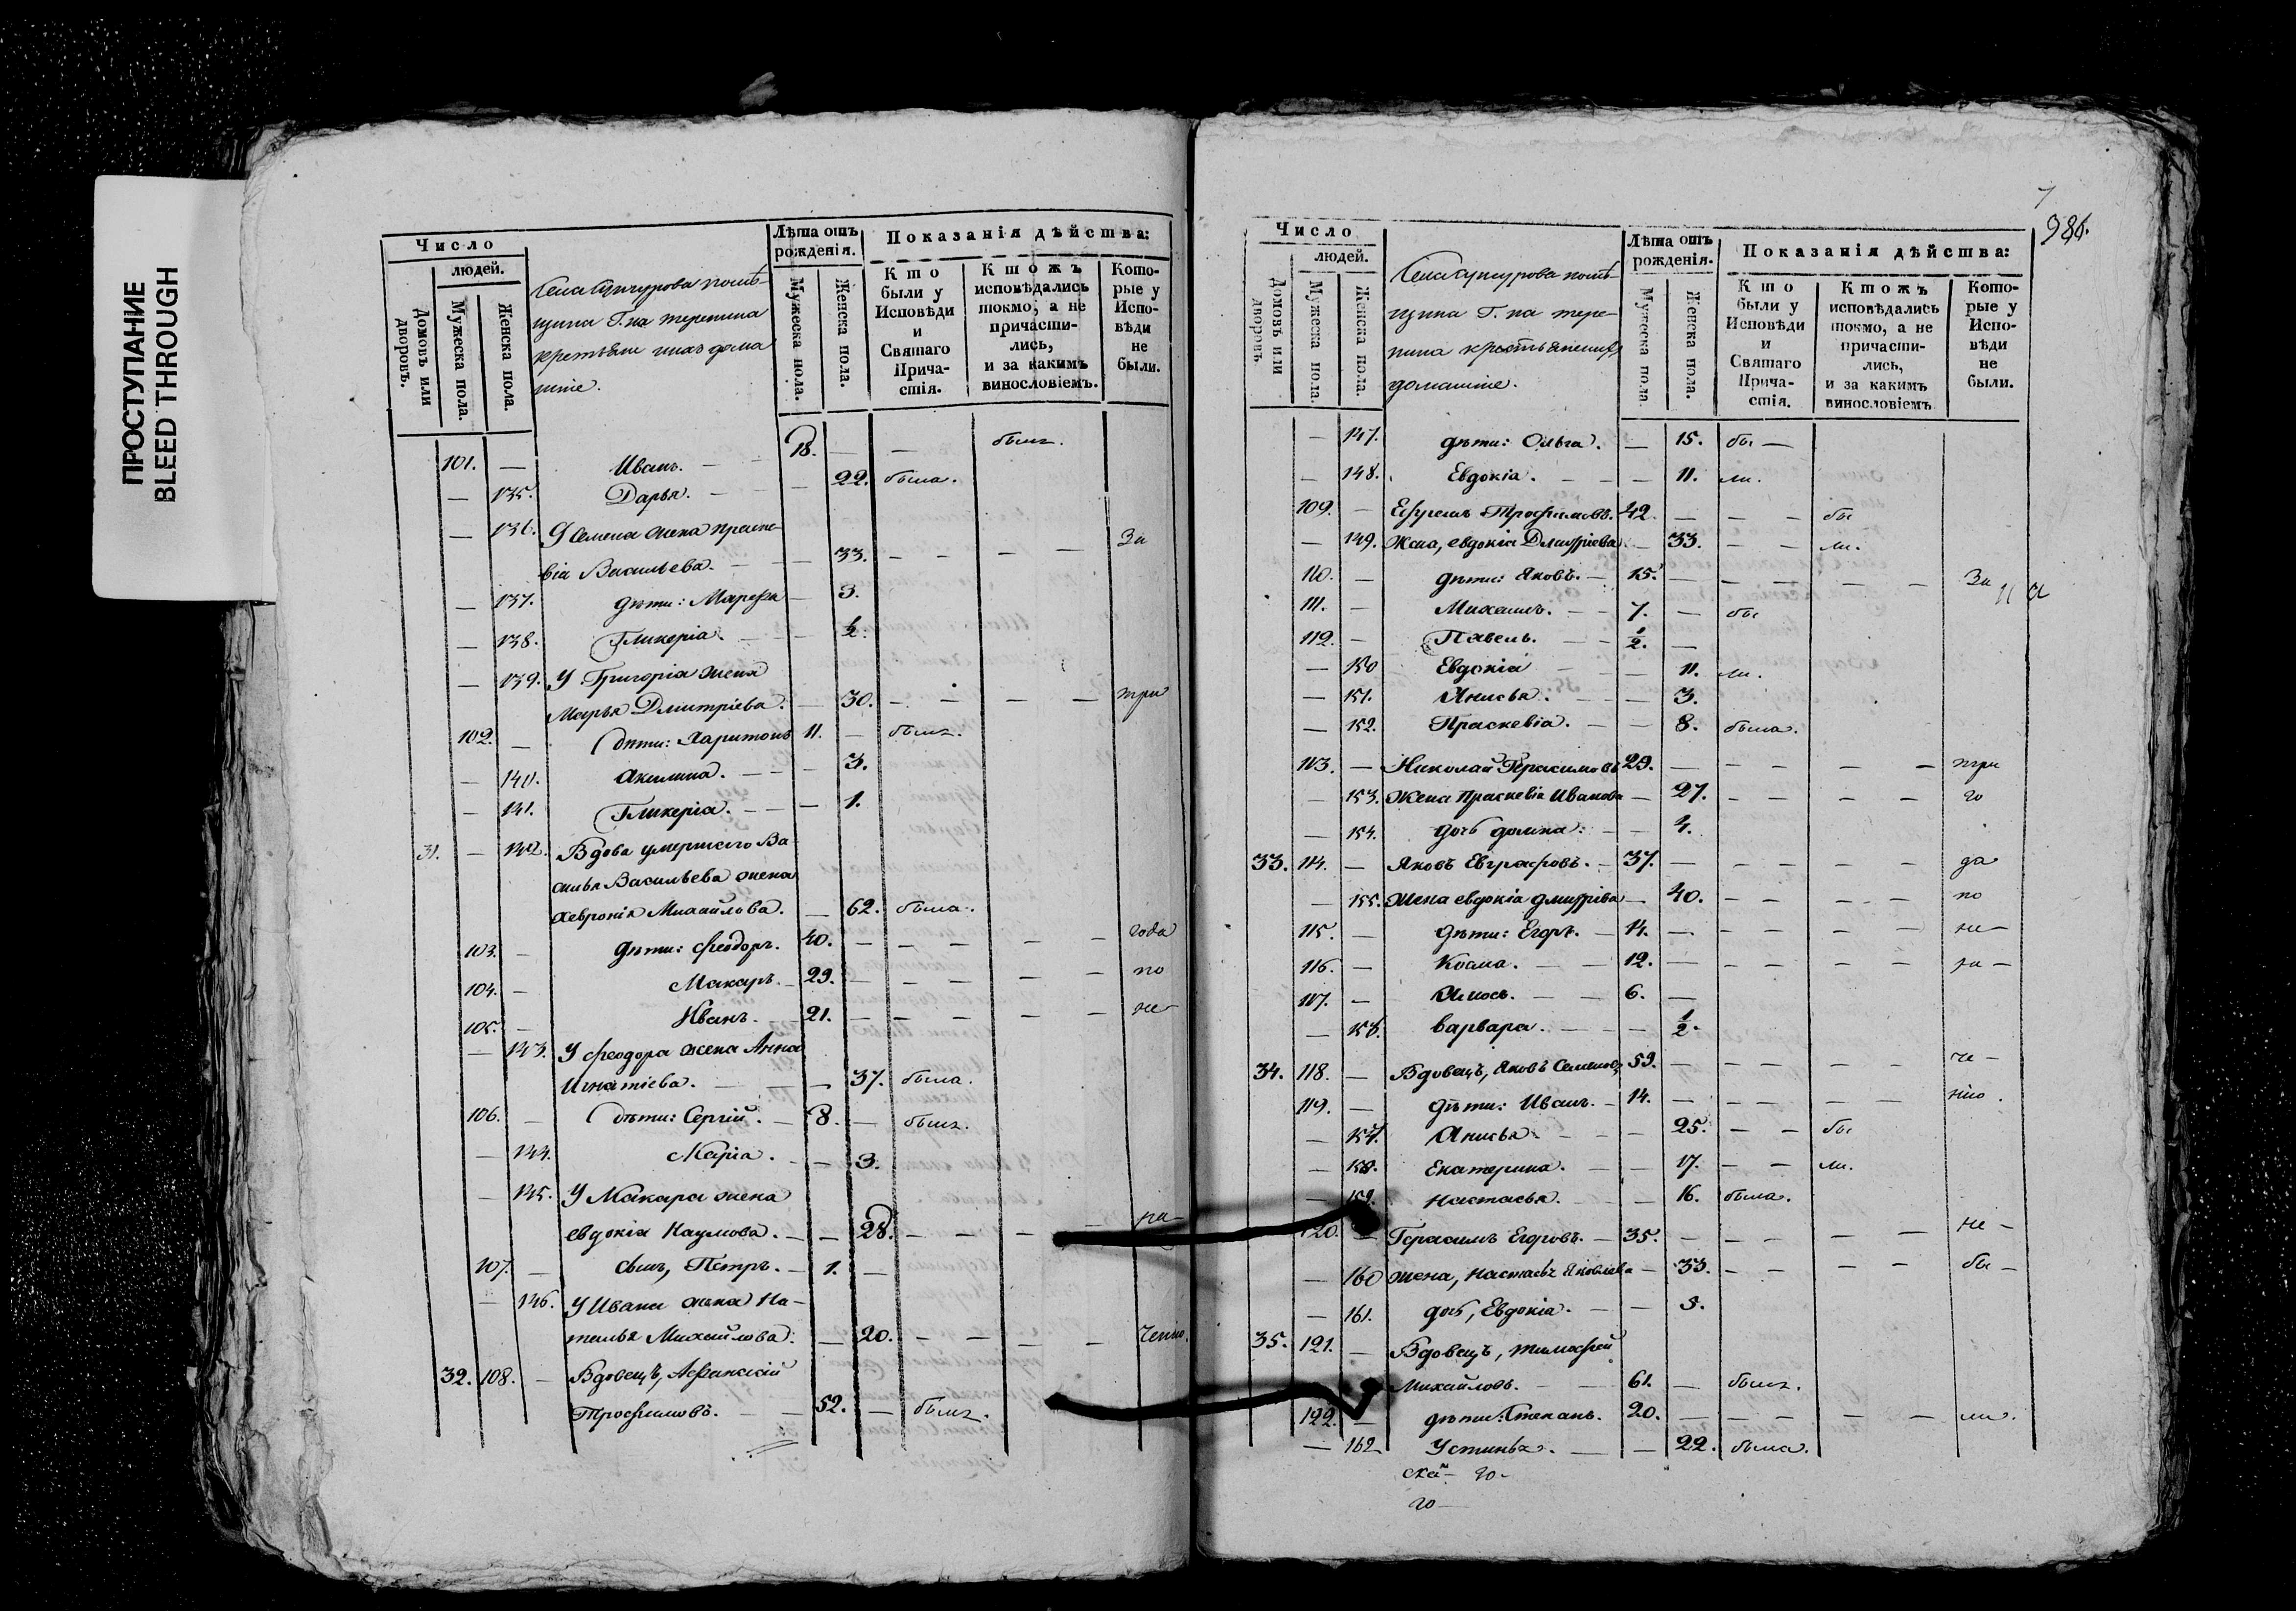 ПРОСТУПАНИЕ
BLEED THROUGH
Число
людей.
Домовъ или дворовъ.
Мужеска пола.
Женска пола.
помѣ-
щика Г.на
крестьяне дома
шніе.
Лѣта отъ рожденія.
Мужеска пола.
Женска пола.
Показанія дѣйства:
Кто были у Исповѣди и Святаго Прича-стія.
Ктожъ исповѣдались токмо, а не причасти-лись, и за какимъ винословіемъ.
Кото-рые у Испо-вѣди не были.
101. — Иванъ. — 18. — — былъ.
— 135. Дарья. — — 22. была.
— 136. У Семена жена Праске-
віа Васильева. — — 33. — — — — За
— 137. дѣти: Марѳа — 3.
— 138. Гликеріа. — — ½.
— 139. У Григоріа жена
Марья Дмитріева. — 30. — — — — три
102. — дѣти: Харитонъ 11. — былъ.
— 140. Акилина. — — — 3.
— 141. Гликеріа. — — — 1.
31. — 142. Вдова умершаго Ва-
силья Васильева жена
Хевроніа Михайлова. — 62. была.
103. — дѣти: Ѳеодоръ. 40. — — — — — года
104. — Макаръ. — 29. — — — — — по
105. — Иванъ. — 21. — — — — — не
— 143. У Ѳеодора жена Анна
Игнатіева. — — 37. была.
106. — дѣти: Сергій. — 8. — былъ.
— 144. Маріа. — — 3.
— 145. У Макара жена
евдокіа Наумова. — — 28. — — — — ра
107. — сынъ, Петръ. — 1. —
— 146. У Ивана жена На-
талья Михайлова. — 20. — — — —
32. 108. — Вдовецъ, Афанасій
Трофимовъ. — — 52. — былъ.
7
986.
Число
людей.
Домовъ или дворовъ.
Мужеска пола.
Женска пола.
помѣ-
щика Г.на
домашніе.
Лѣта отъ рожденія.
Мужеска пола.
Женска пола.
Показанія дѣйства:
Кто были у Исповѣди и Святаго Прича-стія.
Ктожъ исповѣдались токмо, а не причасти-лись, и за какимъ винословіемъ
Кото-рые у Испо-вѣди не были.
— 147. дѣти: Ольга. — 15. бы —
— 148. Евдокіа. — — — 11. ли.
109. — Ефремъ Трофимовъ. 42. — — — бы
— 149. Жена, евдокіа Дмитріева — 33. — — ли.
110. — дѣти: Яковъ. — 15. — — — — — За
111. — Михаилъ. — — 7. — бы
112. — Павелъ. — — ½. —
— 150 Евдокіа — — 11. ли.
— 151. Анисья. — — 3.
— 152. Праскевіа. — — 8. была.
113. — Николай Герасимовъ 29. — — — — — три
— 153. Жена Праскевіа Иванова — 27. — — — — го
— 154. дочь домна: — — 4.
33. 114. — Яковъ Евграфовъ. — 37. — — — — — да
— 155. Жена евдокіа дмитріева — 40. — — — — по
115. — дѣти: Егоръ. — 14. — — — — — не —
116. — Косма. — — 12. — — — — — ра —
117. — Амосъ. — — 6. —
— 156. варвара. — — — ½.
34. 118. — Вдовецъ, Яковъ Семеновъ, 59. — — — — — че —
119. — дѣти: Иванъ. — 14. — — — — — нію.
— 157. Анисья. — — — 25. — — бы
— 158. Екатерина. — — 17. — — ли.
— 159. Настасья. — — 16. была.
120. — Герасимъ Егоровъ. — 35. — — — — — не —
— 160 жена, Настасья Яковлева — 33. — — — — бы —
— 161. дочь, Евдокіа. — — 5.
35. 121. — Вдовецъ, Тимофей
Михайловъ. — — 61. — былъ.
122. — дѣти: Степанъ. 20. — — — — — ли.
— 162 Устинья. — — 22. была.